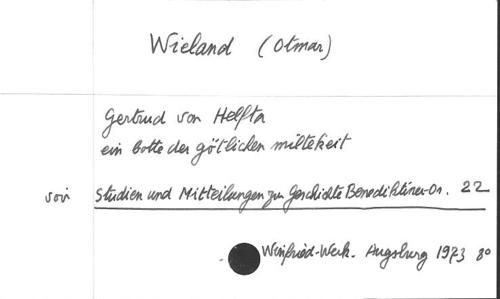 Wieland (Otmar)
Gertrud von Helfta
ein Botte der götlichen miltekeit
voir Studien und Mitteilungen zur Geschichte Benediktiner-Or. 22
Winfried-Werk. Augsburg 1973 8°